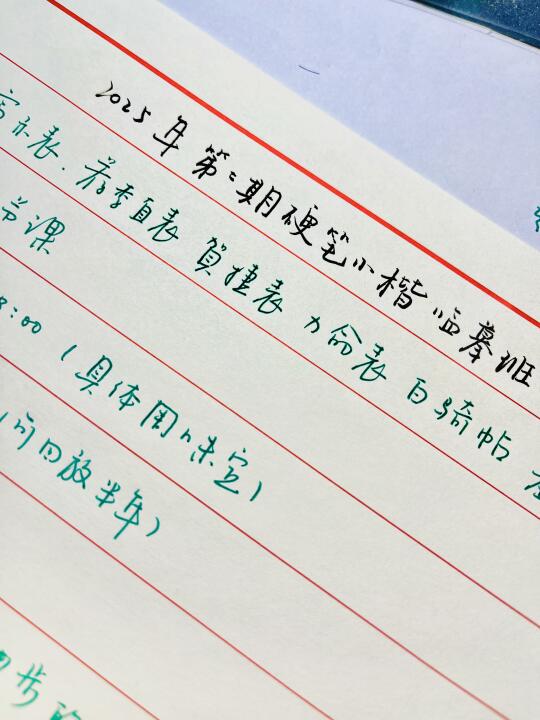 2025年第二期硬笔小楷临摹班
宣示表 荐季直表 贺捷表 力命表 白骑帖
节课
8:00 (具体周几未定)
可回放半年)
步